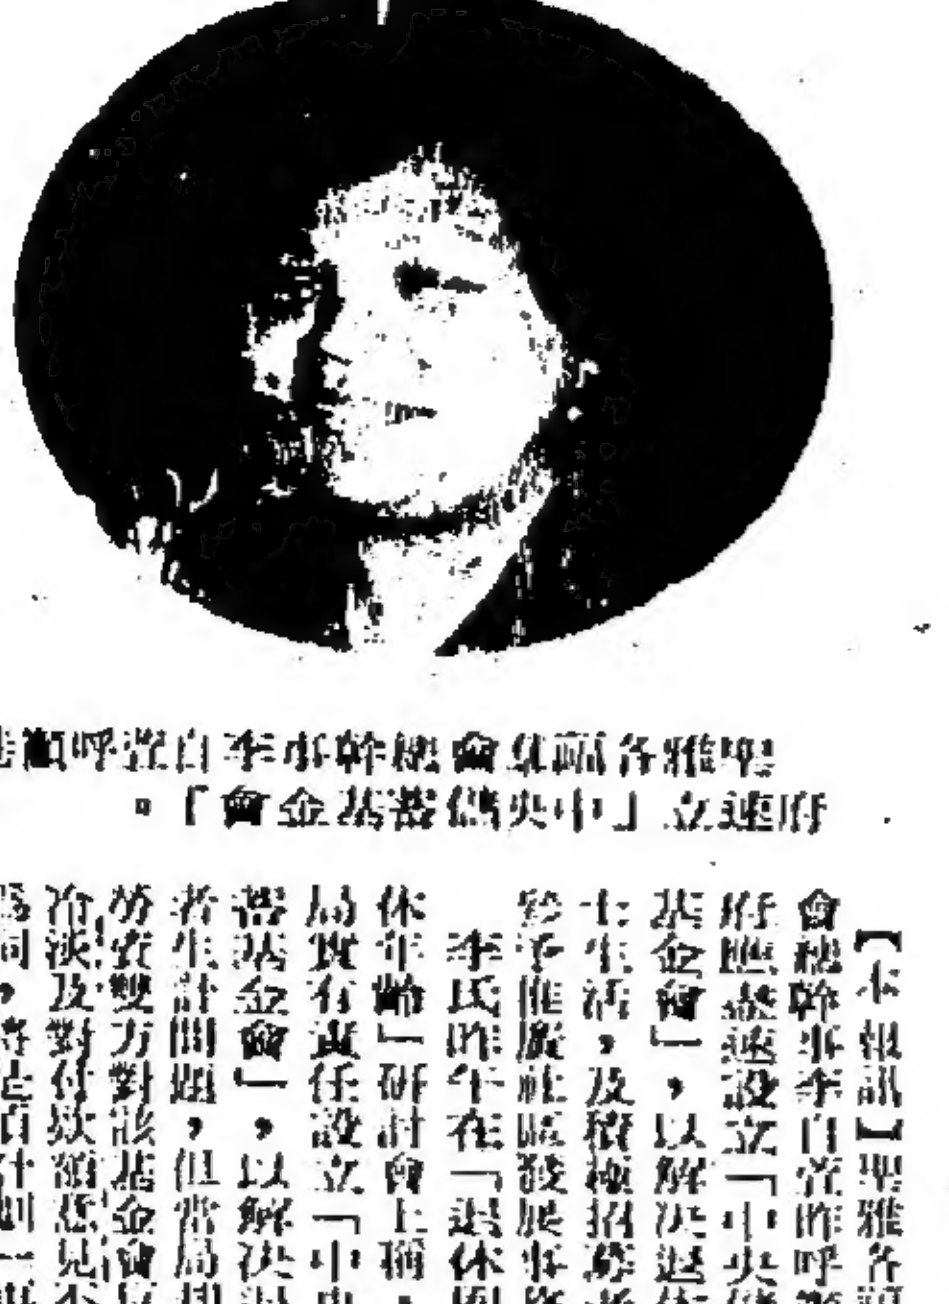 聖雅各福群會總幹事李自呼籲
府速立「中央儲蓄基金會」。
【本報訊】聖雅各
會總幹事李自昨呼
府應盡速設立「中央
基金會」,以解決退
士生活,及積極招募
參予推廣社區發展事
李氏昨午在「退休
休年齡」研討會上稱
局實有責任設立「中
蓄基金會」,以解決
者生計問題,但當局
勞資雙方對該基金會
冷淡,及對付款額意見不